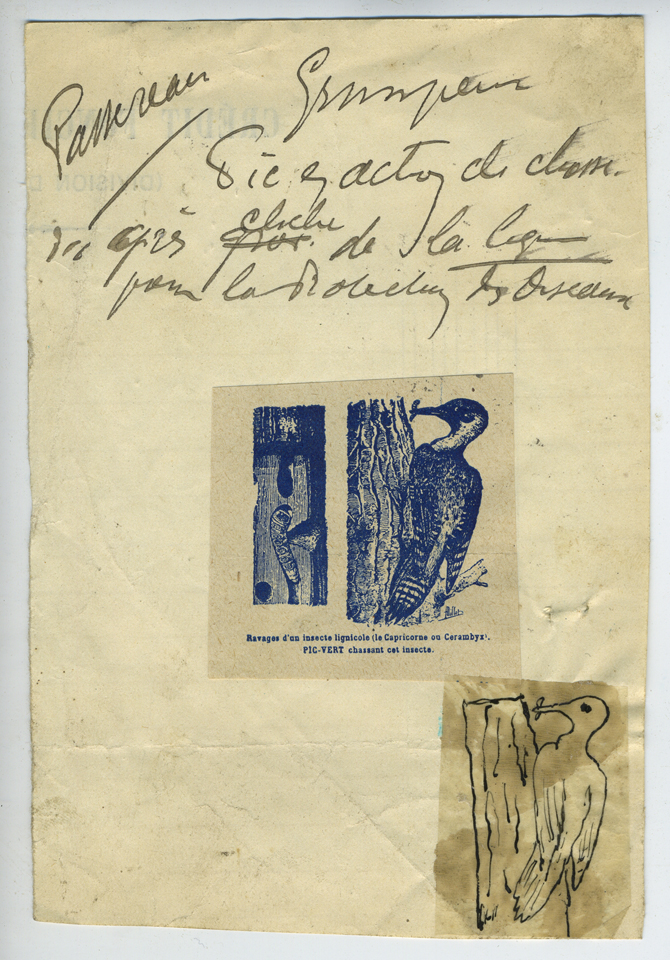 Passereau
Grimpeur
Pic en action de chasse.
d'après cliché de la ligue
pour la Protection des Oiseaux
Ravages d'un insecte lignicole (le Capricorne ou Cerambyx).
PIC-VERT chassant cet insecte.